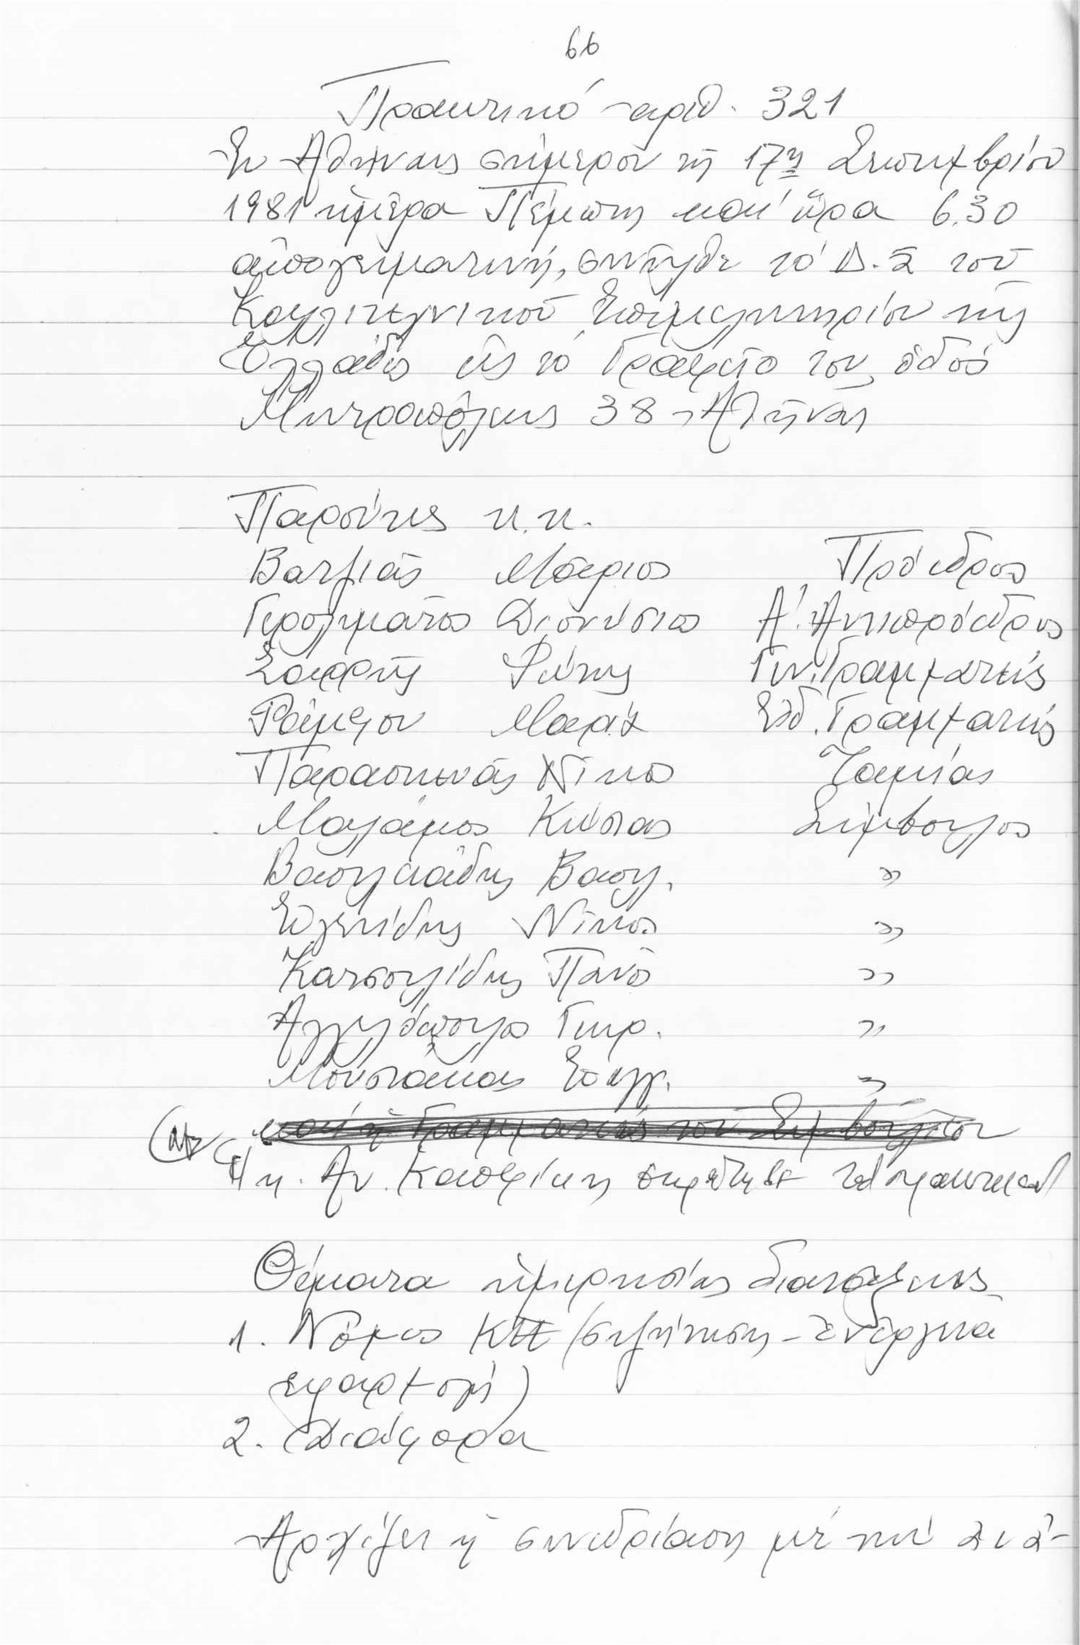 66
Πρακτικό αριθ. 321
Ἐν Ἀθήναις σήμερον τῇ 17ῃ Σεπτεμβρίου
1981 ἡμέρα Πέμπτη καί ὥρα 6.30
ἀπογευματινή, συνῆλθε τό Δ.Σ τοῦ
Καλλιτεχνικοῦ Ἐπιμελητηρίου τῆς
Ἑλλάδος εἰς τό Γραφεῖο του, ὁδός
Μητροπόλεως 38 - Ἀθῆνας
Παρόντες κ.κ.
Βατζιᾶς Μάριος Πρόεδρος
Γερολυμᾶτος Διονύσιος Α'. Ἀντιπρόεδρος
Φώτης Γεν. Γραμματεύς
Ράμφου Μαρία Εἰδ. Γραμματεύς
Παρασκευᾶς Νίκος Ταμίας
Μαλάμος Κώστας Σύμβουλος
Βασιλειάδης Βασιλ. "
Νίκος "
Κατσουλίδης Πάνος "
Ἀγγελόπουλος Γεωρ. "
Μουστάκας Εὐαγγ. "
καί ἡ Γραμματεύς τοῦ Συμβουλίου
Ἡ κ. Αν. τά πρακτικά
Θέματα ἡμερησίας διατάξεως
1. Νόμος ΚΕΕ (συζήτηση - ἐνέργεια
ἐφαρμογή)
2. Διάφορα
Ἀρχίζει ἡ συνεδρίαση μέ τήν ἀνά-